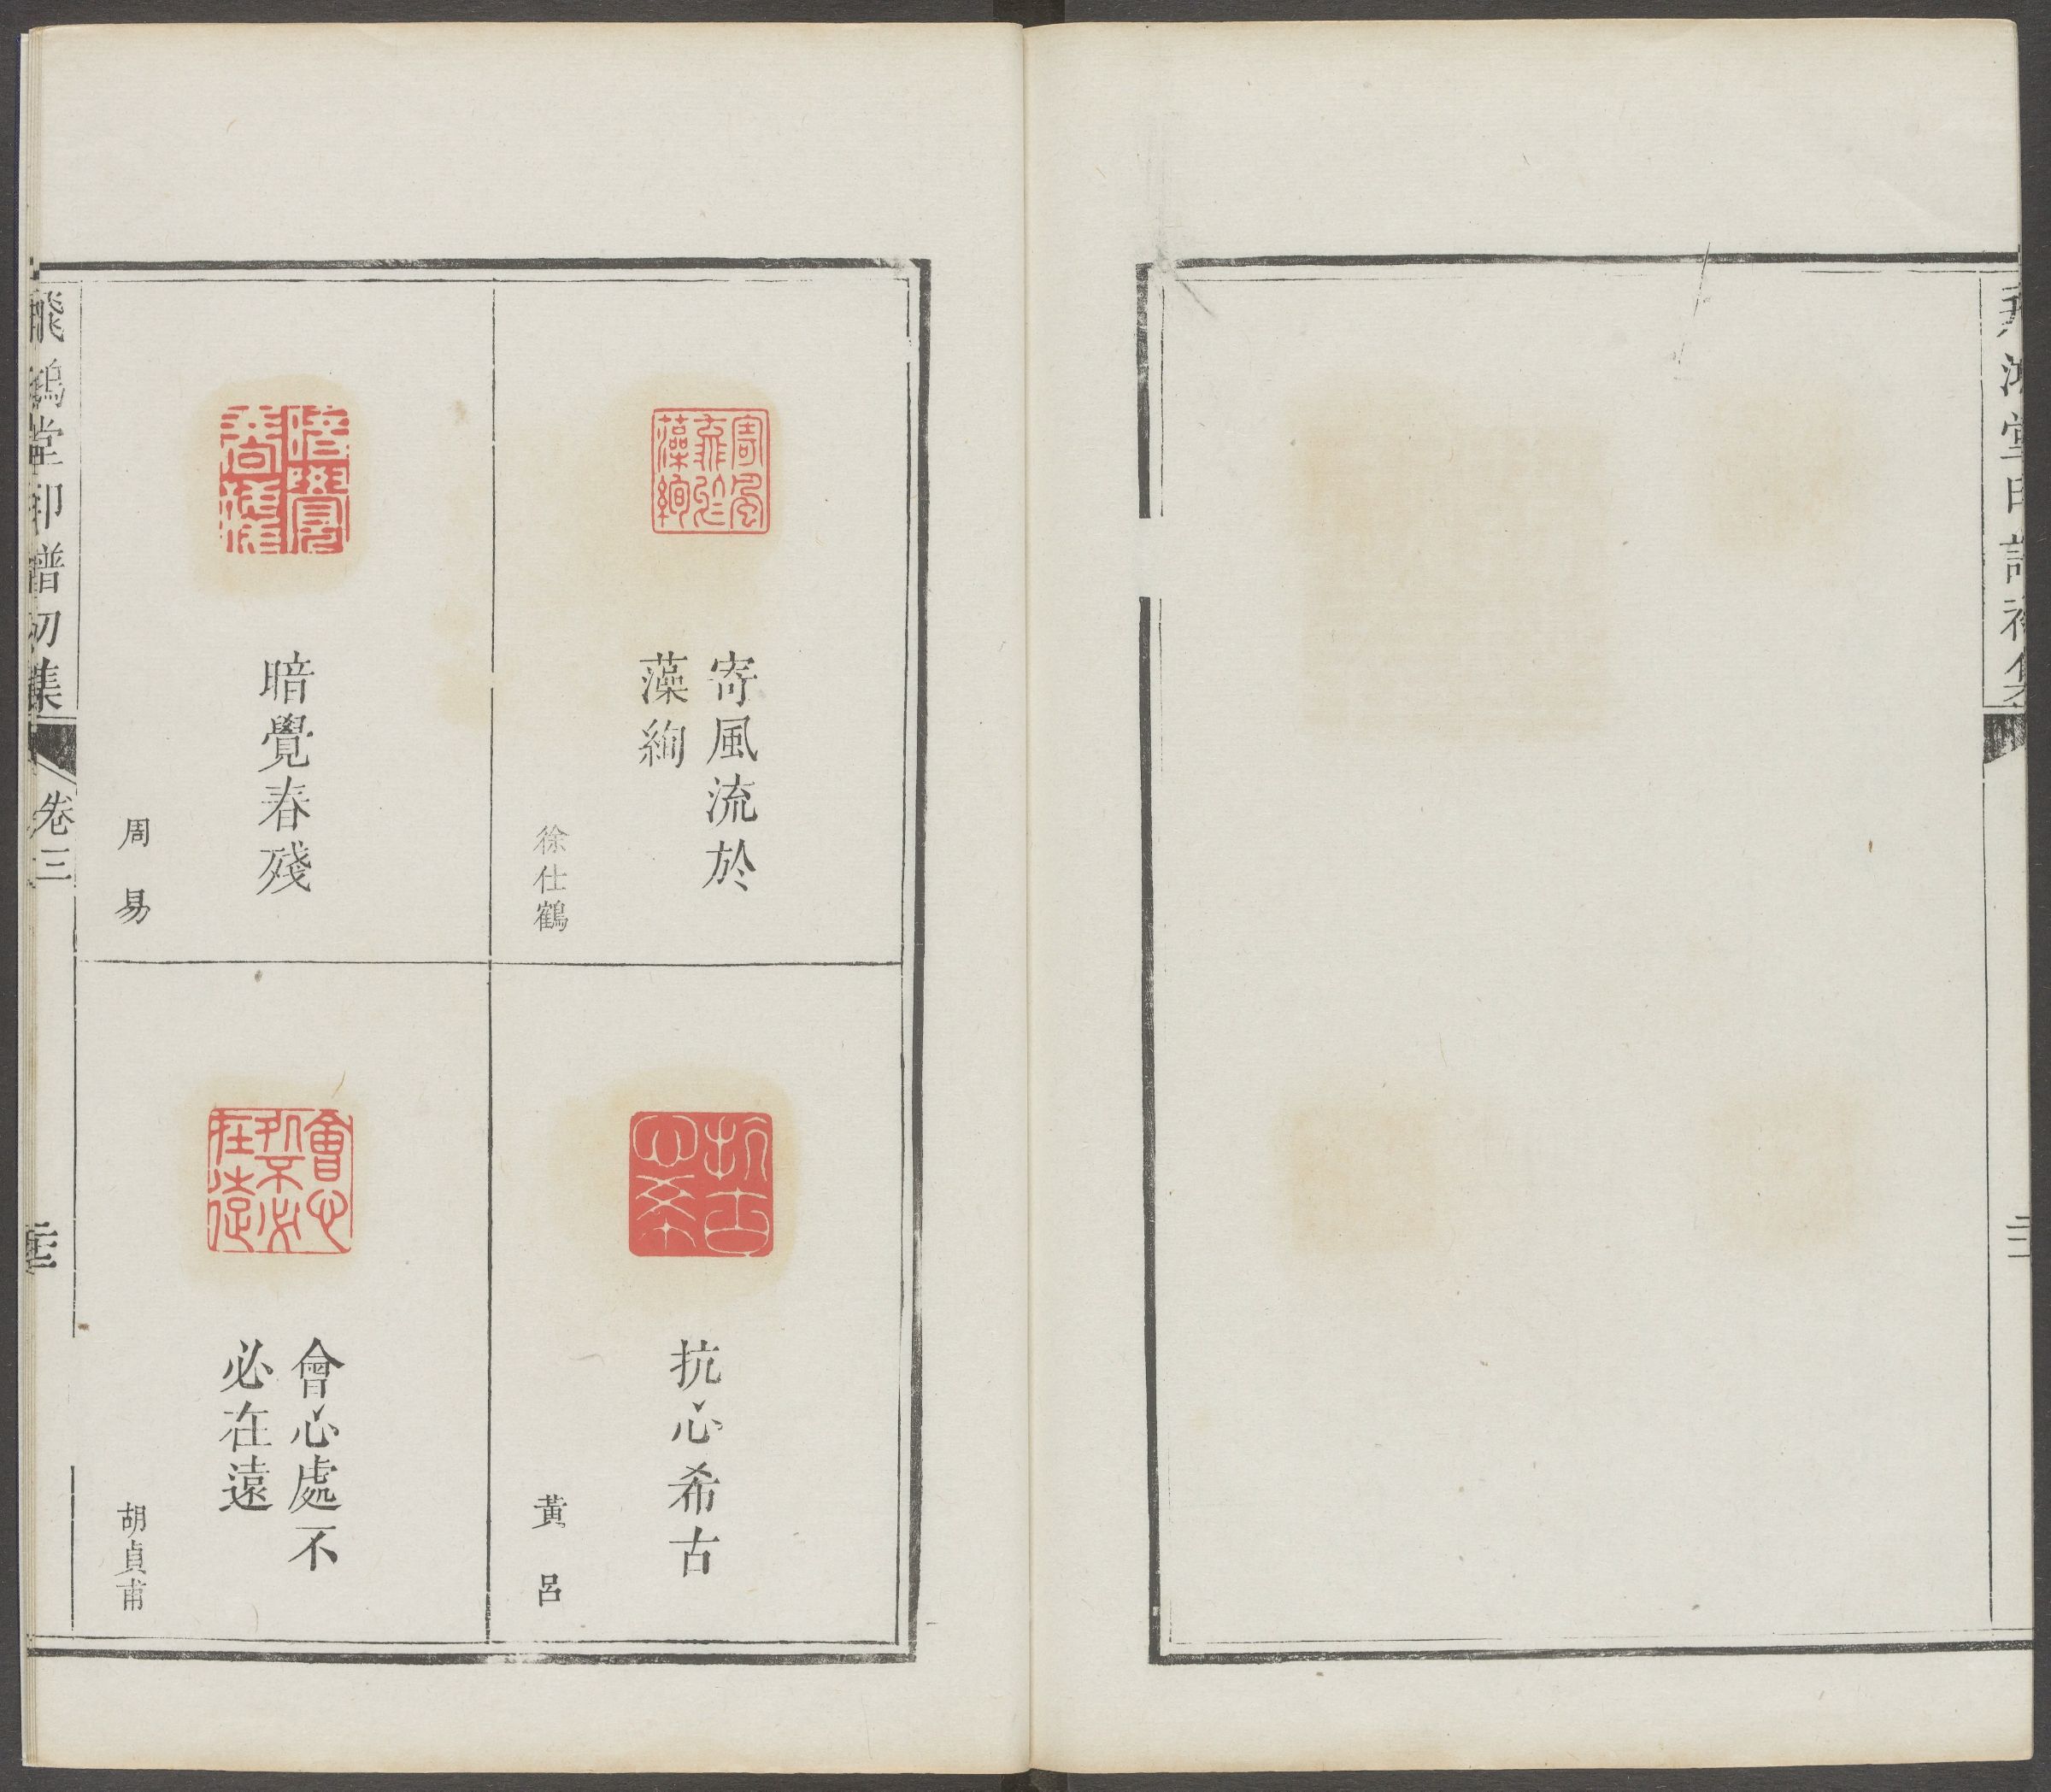 寄風流於
藻絢
徐仕鶴
抗心希古
黃呂
暗覺春殘
周易
會心處不
必在遠
胡貞甫
飛鴻堂印譜初集
卷三